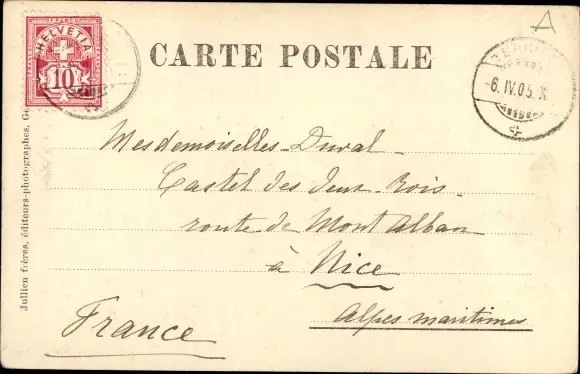 A
HELVETIA
FRANCO
10
CARTE POSTALE
-6.IV.05.X
Mesdemoiselles Duval
Castel des deux Rois
route de Mont Alban
à Nice
Alpes maritimes
France
Jullien frères, éditeurs-photographes, Ge